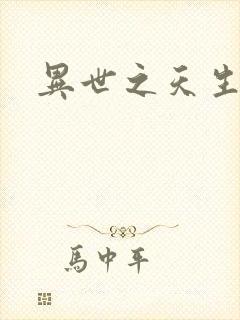 異世之天生
馬中平